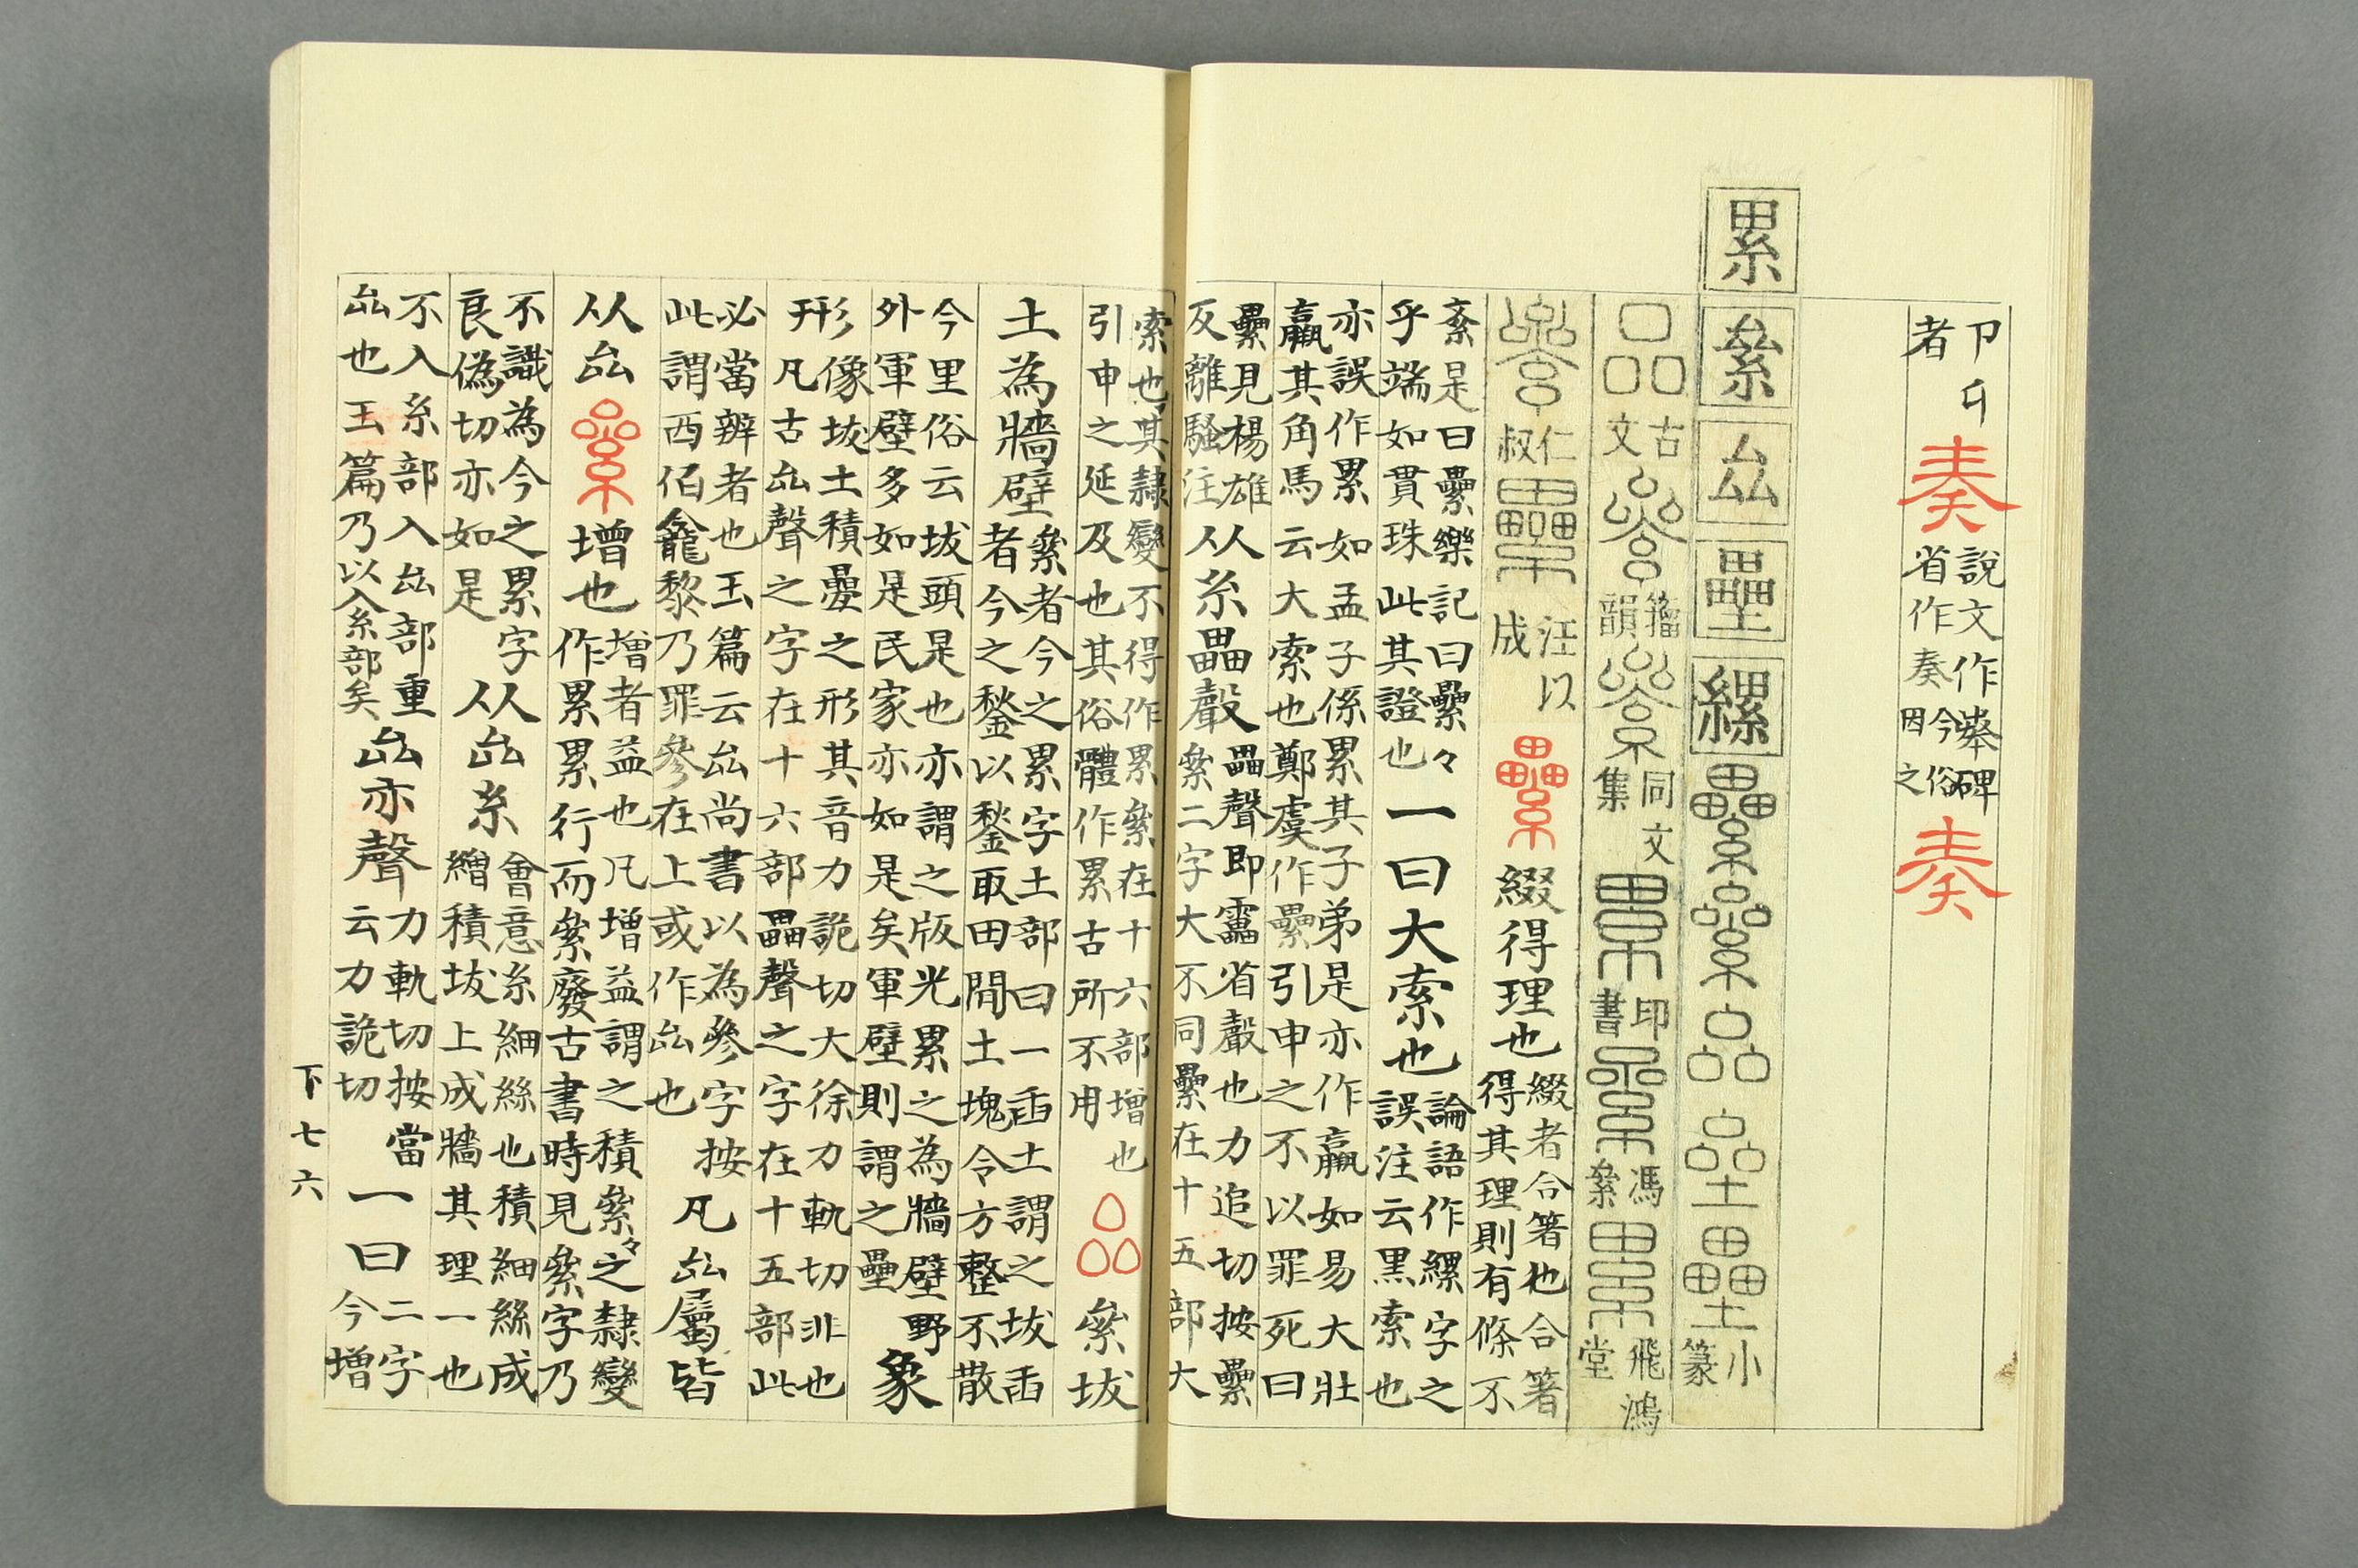 卩㔿
者
奏
說文作𡴀碑
省作奏今俗
因之
奏
累
絫
厽
壘
縲
小
篆
古
文
籀
韻
同文
集
印
書
馮
絫
飛鴻
堂
仁
叔
汪以
成
纍
綴得理也
綴者合箸也合箸
得其理則有條不
紊是曰纍樂記曰纍々
乎端如貫珠此其證也
一曰大索也
論語作縲字之
誤注云黑索也
亦誤作累如孟子係累其子弟是亦作羸如易大壯
羸其角馬云大索也鄭虞作纍引申之不以罪死曰
纍見楊雄
反離騷注
从糸畾聲
畾聲即靁省聲也力追切按纍
絫二字大不同纍在十五部大
索也其隷變不得作累絫在十六部增也
引申之延及也其俗體作累古所不用
厽
絫坺
土為牆壁
絫者今之累字土部曰一臿土謂之坺臿
者今之鍫以鍫取田間土塊令方整不散
今里俗云坺頭是也亦謂之版光累之為牆壁野
外軍壁多如是民家亦如是矣軍壁則謂之壘
象
形
形像坺土積疊之形其音力詭切大徐力軌切非也
凡古厽聲之字在十六部畾聲之字在十五部此
必當辨者也玉篇云厽尚書以為參字按
此謂西伯龕黎乃罪參在上或作厽也
凡厽屬皆
从厽
絫
增也
增者益也凡增益謂之積絫々之隷變
作累累行而絫廢古書時見絫字乃
不識為今之累字
良偽切亦如是
从厽糸
會意糸細絲也積細絲成
繒積坺土成牆其理一也
不入糸部入厽部重
厽也玉篇乃以入糸部矣
厽亦聲
力軌切按當
云力詭切
一曰
二字
今增
下七六